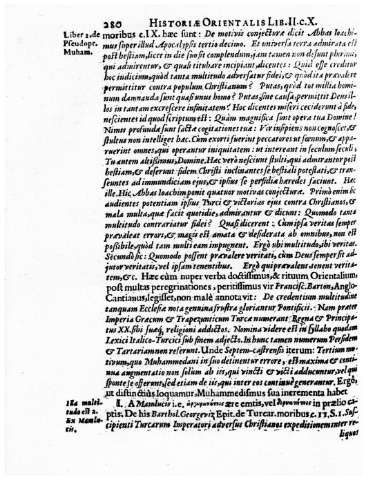 280 HISTORIÆ ORIENTALIS LIB.II.c.X.
Liber 1. de
Pseudope.
Muham.
moribus c.IX. hæc sunt: De motivis conjecturæ dicit Abbas Ioachi-
mus super illud Apocalypsis tertio decimo. Et universa terra admirata est
post bestiam, licet in die suo sit complendum, jam tamen non desunt plurimi,
qui admirentur, & quasi titubare incipiant, dicentes: Quid esse creditur
hoc indicium, quòd tanta multitudo adversatur fidei, & quòd ita prævalere
permittitur contra populum Christianum? Putas, quòd tot millia homi-
num damnanda sunt quasi unus homo? Putas, sine causa permittit Deus il-
los in tantam excrescere infinitatem? Hæc dicentes miseri ceciderunt à fide,
nescientes id quod scriptum est: Quàm magnifica sunt opera tua Domine!
Nimis profundæ sunt factæ cogitationes tuæ: Vir insipiens non cognoscet, &
stultus non intelliget hæc. Cum exorti fuerint peccatores ut fœnum, & appa-
ruerint omnes, qui operantur iniquitatem: ut intereant in seculum seculi.
Tu autem altissimus, Domine. Hæc verò nesciunt stulti, qui admirantur post
bestiam, & deserunt fidem Christi inclinantes se bestiali potestati, & trans-
euntes ad immunditiam ejus, & ipsius se perfidiæ hæredes faciunt. Hæc
ille. Hic Abbas Ioachim ponit quatuor motiva conjecturæ. Primò enim hi
audientes potentiam ipsius Turci & victorias ejus contra Christianos, &
mala multa, quæ facit quotidie, admirantur & dicunt: Quomodo tanta
multitudo contrariatur fidei? Quasi dicerent: Cum ipsa veritas semper
prævaleat errori, & magis est amata & desiderata ab omnibus, non est
possibile, quòd tam multi eam impugnent. Ergò ubi multitudo, ibi veritas.
Secundò sic: Quomodo possent prævalere veritati, cùm Deus semper sit ad-
jutor veritatis, vel ipsam tenentibus. Ergò qui prævalent tenent verita-
tem, &c. Hæc cùm nuper verba doctissimus, & rituum Orientalium,
post multas peregrinationes, peritissimus vir Francisc. Barton, Anglo-
Cantianus, legisset, non malè annotavit: De credentium multitudine
tanquam Ecclesiæ nota genuina frustra gloriantur Pontificii. Nam præter
Imperia Græcum & Trapezuntinum Turcæ numerant Regna & Principa-
tus XX. sibi suæq; religioni addictos. Nomina videre est in syllabo quodam
Lexici Italico-Turcici sub finem adjecto. In hunc tamen numerum Persidem
& Tartariam non referunt. Unde Septem-castrensis iterum: Tertium mo-
tivum, quo Muhammedani in suo detinentur errore, est maxima & conti-
nua augmentatio non solùm ab iis, qui vincti & victi adducuntur, vel qui
sponte se offerunt, sed etiam de iis, qui inter eos continuè generantur. Ergò,
ut distinctiùs loquamur, Muhammedismus sua incrementa habet
Ita multi-
tudo est 2.
Ex Mamlu-
cis,
I. A Mancipiis i.e. ære emtis, vel in prælio ca-
ptis. De his Barthol. Georgeviz Epit. de Turcar. moribus c.11, S.1. Sus-
cipienti Turcarum Imperatori adversus Christianos expeditionem inter re-
liquos